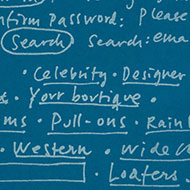 nfirm Password: Please
Search Search: ema
· Celebrity · Designer
· Your boutique ·
ms · Pull-ons · Rain
· Western · Wide C
Loafers ·